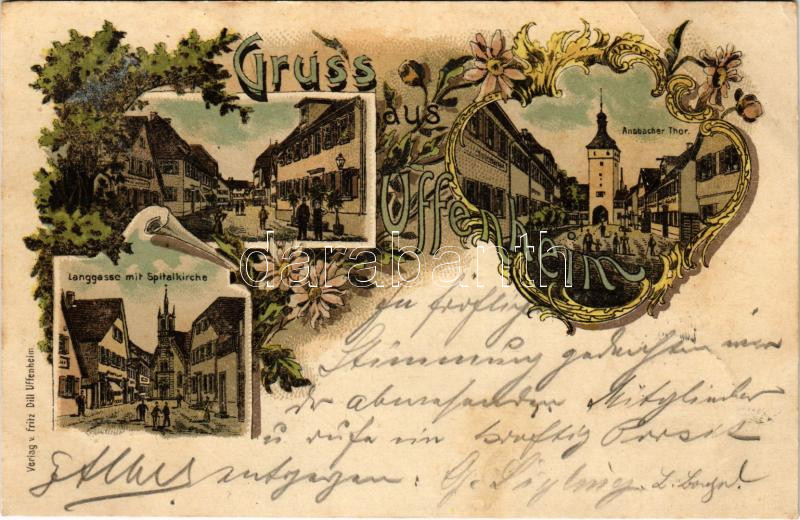 Gruss
aus
Uffenheim
Ansbacher Thor.
Langgasse mit Spitalkirche
Verlag v. Fritz Dill Uffenheim
darabanth.com
In fröhlicher
Stimmung gedachten wir
der abwesenden Mitglieder
u rufe ein kräftig Prosit
entgegen: G.